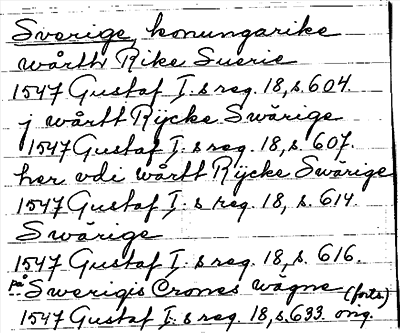 Sverige, konungarike
wårth Rike Suerie
1547 Gustaf I:s reg. 18, s. 604.
j wårtt Rycke Swärige
1547 Gustaf I:s reg. 18, s. 607.
her vdi wårtt Rycke Swärige
1547 Gustaf I:s reg. 18, s. 614.
Swärige
1547 Gustaf I:s reg. 18, s. 616.
på Swerigis Crones wägne (forts)
1547 Gustaf I:s reg. 18, s. 633. org.